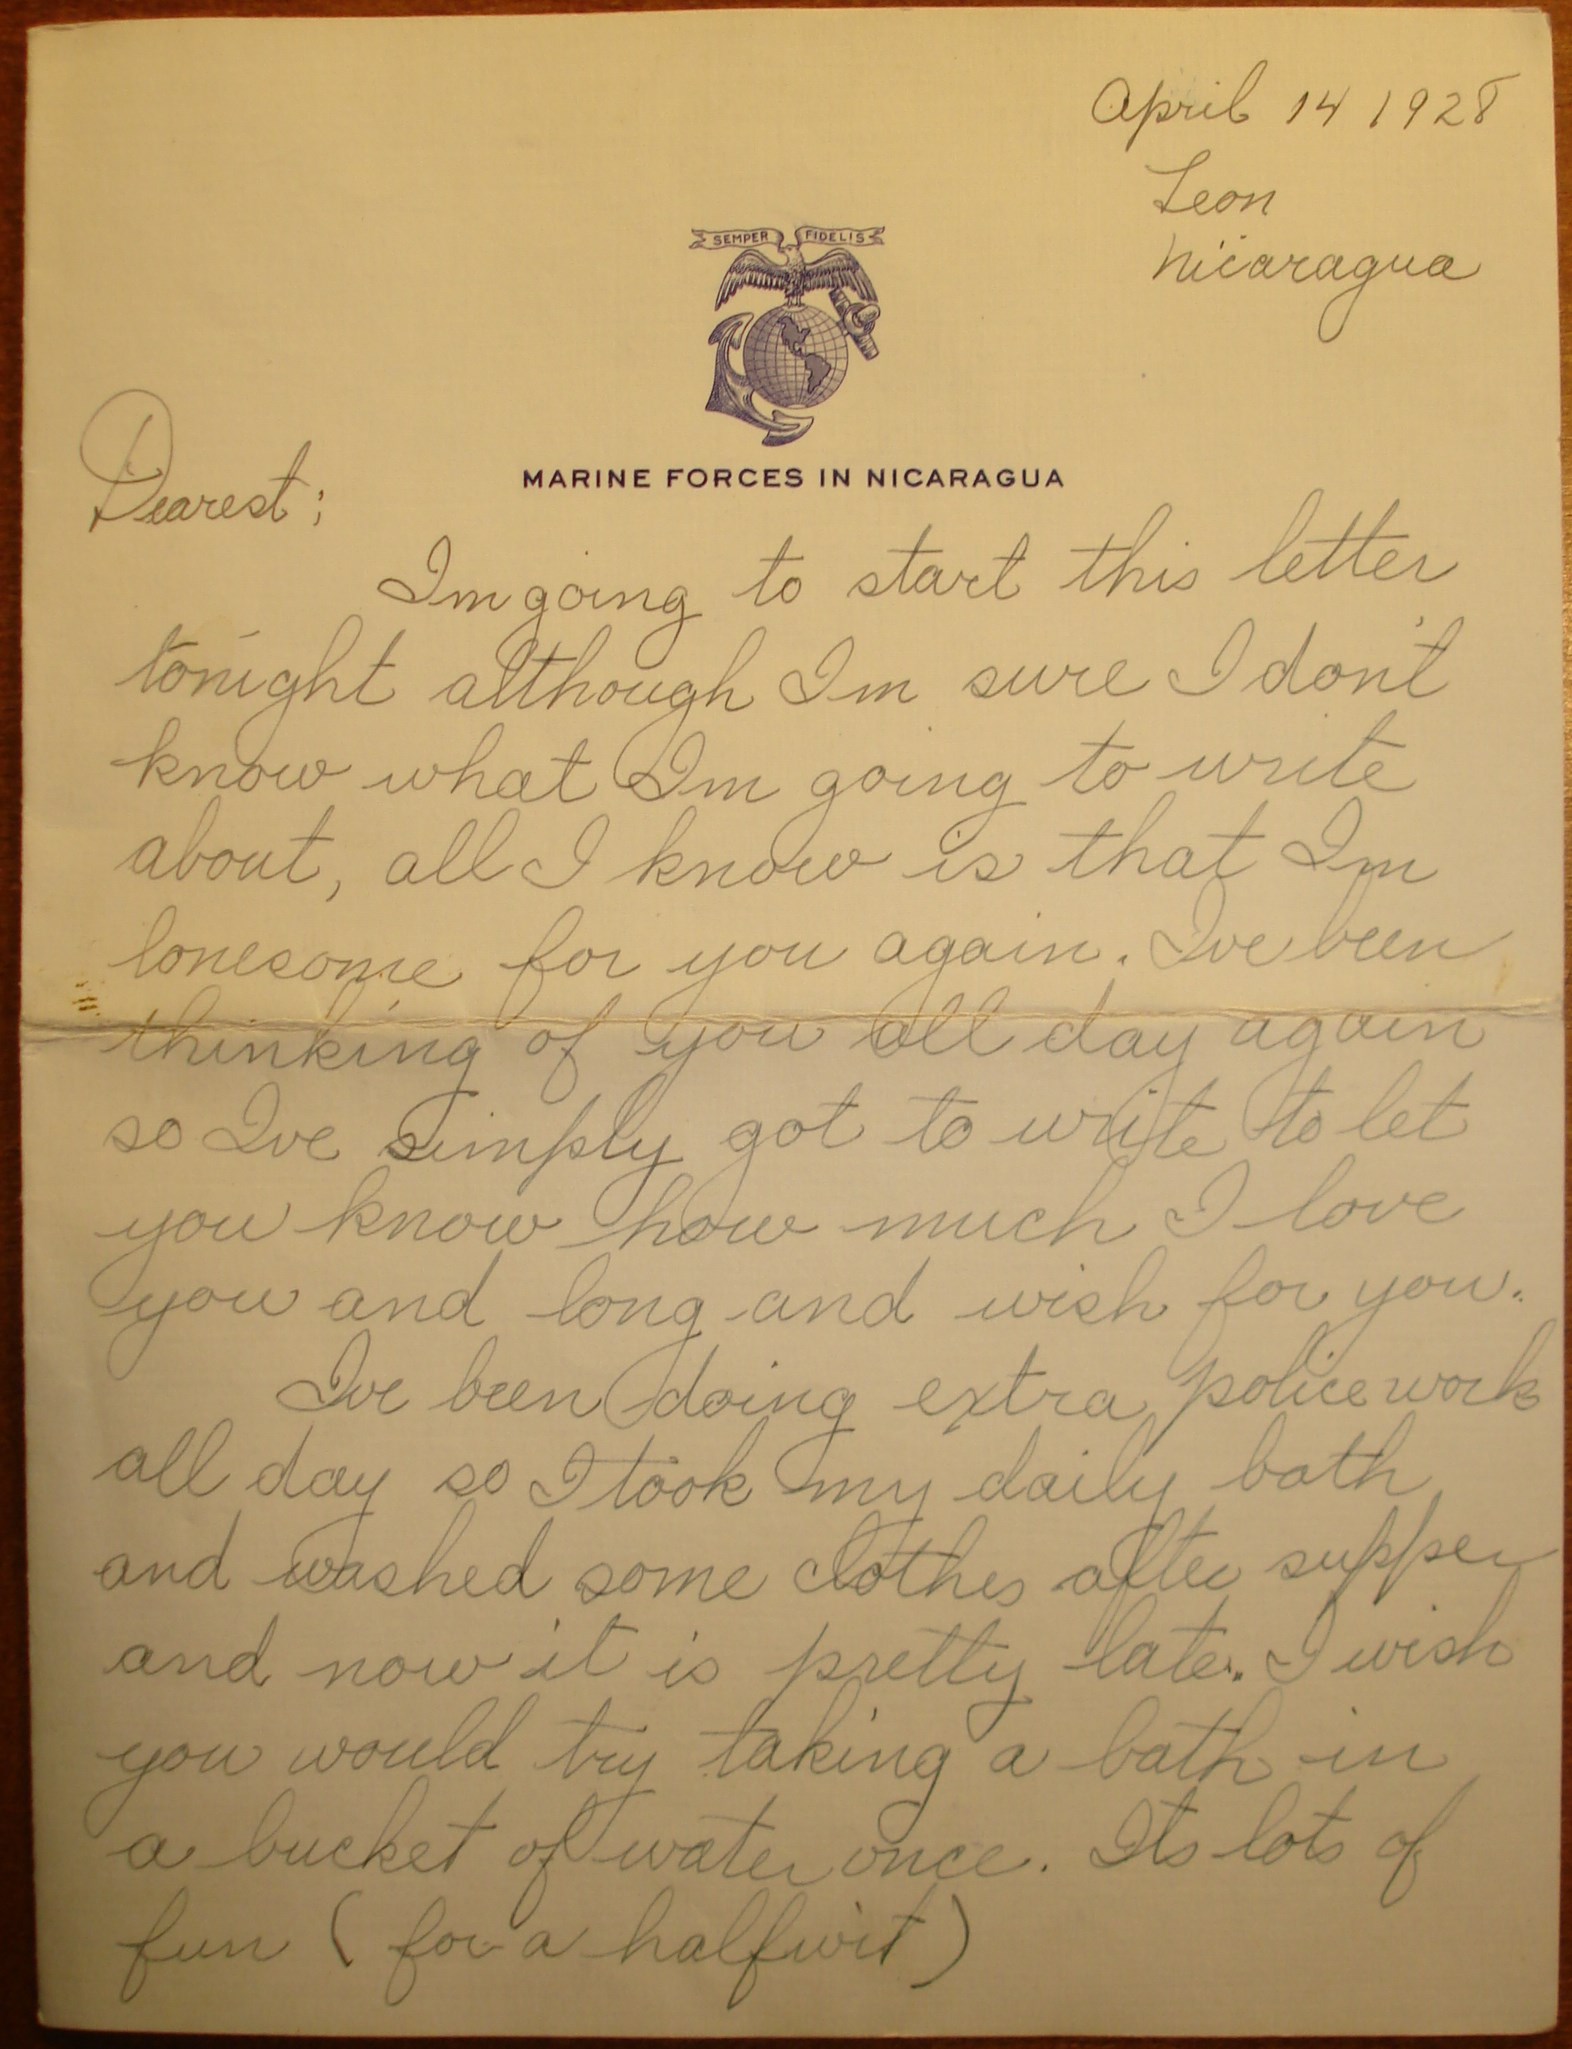 April 14 1928
Leon
Nicaragua
SEMPER FIDELIS
MARINE FORCES IN NICARAGUA
Dearest;
Im going to start this letter
tonight although Im sure I don't
know what Im going to write
about, all I know is that Im
lonesome for you again. Ive been
thinking of you all day again
so Ive simply got to write to let
you know how much I love
you and long and wish for you.
Ive been doing extra police work
all day so I took my daily bath
and washed some clothes after supper
and now it is pretty late. I wish
you would try taking a bath in
a bucket of water once. Its lots of
fun (for a halfwit)